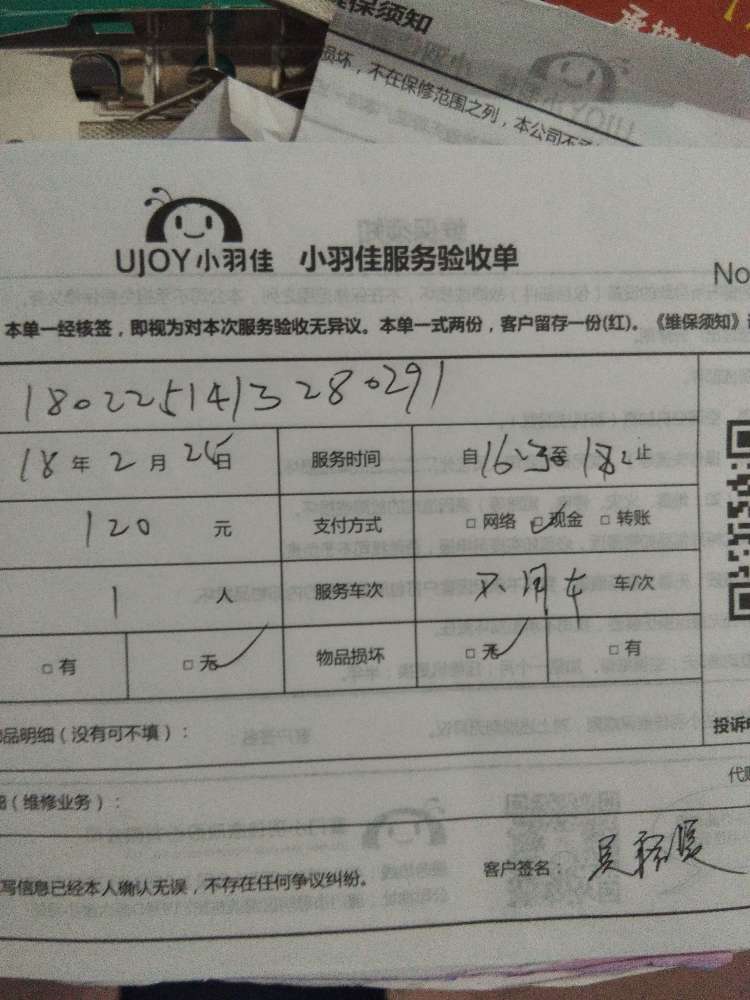 维保须知
损坏，不在保修范围之列，本公司不承
UJOY小羽佳 小羽佳服务验收单
No
本单一经核签，即视为对本次服务验收无异议。本单一式两份，客户留存一份(红)。《维保须知》
1802251413280291
18年2月26日 服务时间 自16:23至18:2止
120元 支付方式 □网络 □现金 □转账
1人 服务车次 不用车 车/次
□有 □无 物品损坏 □无 □有
品明细（没有可不填）：
投诉
（维修业务）：
代
写信息已经本人确认无误，不存在任何争议纠纷。
客户签名：